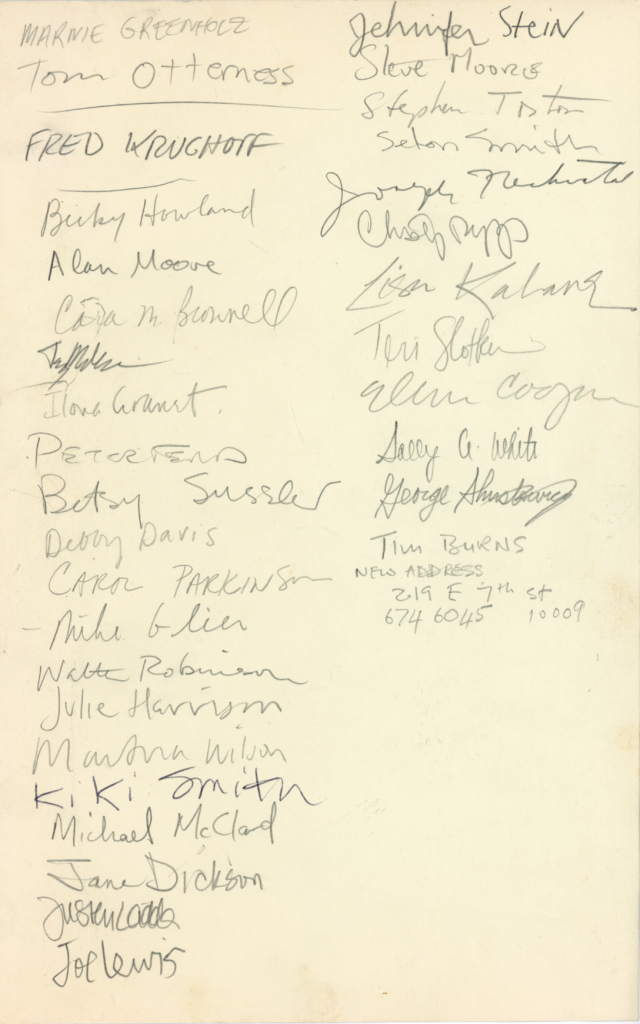 MARNIE GREENHOLZ
Tom Otterness
FRED KRUGHOFF
Becky Howland
Alan Moore
Cara M. Brownell
Ilona Granet.
PETER FEND
Betsy Sussler
Debby Davis
CAROL PARKINSON
- Mike Glier
Walter Robinson
Julie Harrison
Martina Wilson
KiKi Smith
Michael McClard
Jane Dickson
Justen Ladda
Joe Lewis
Jennifer Stein
Steve Moore
Stephen
Seton Smith
Joseph
Christy Rupp
Lisa Kahane
Teri Slotkin
Ellen Cooper
Sally G. White
George
TIM BURNS
NEW ADDRESS
219 E 7th St
674 6045 10009